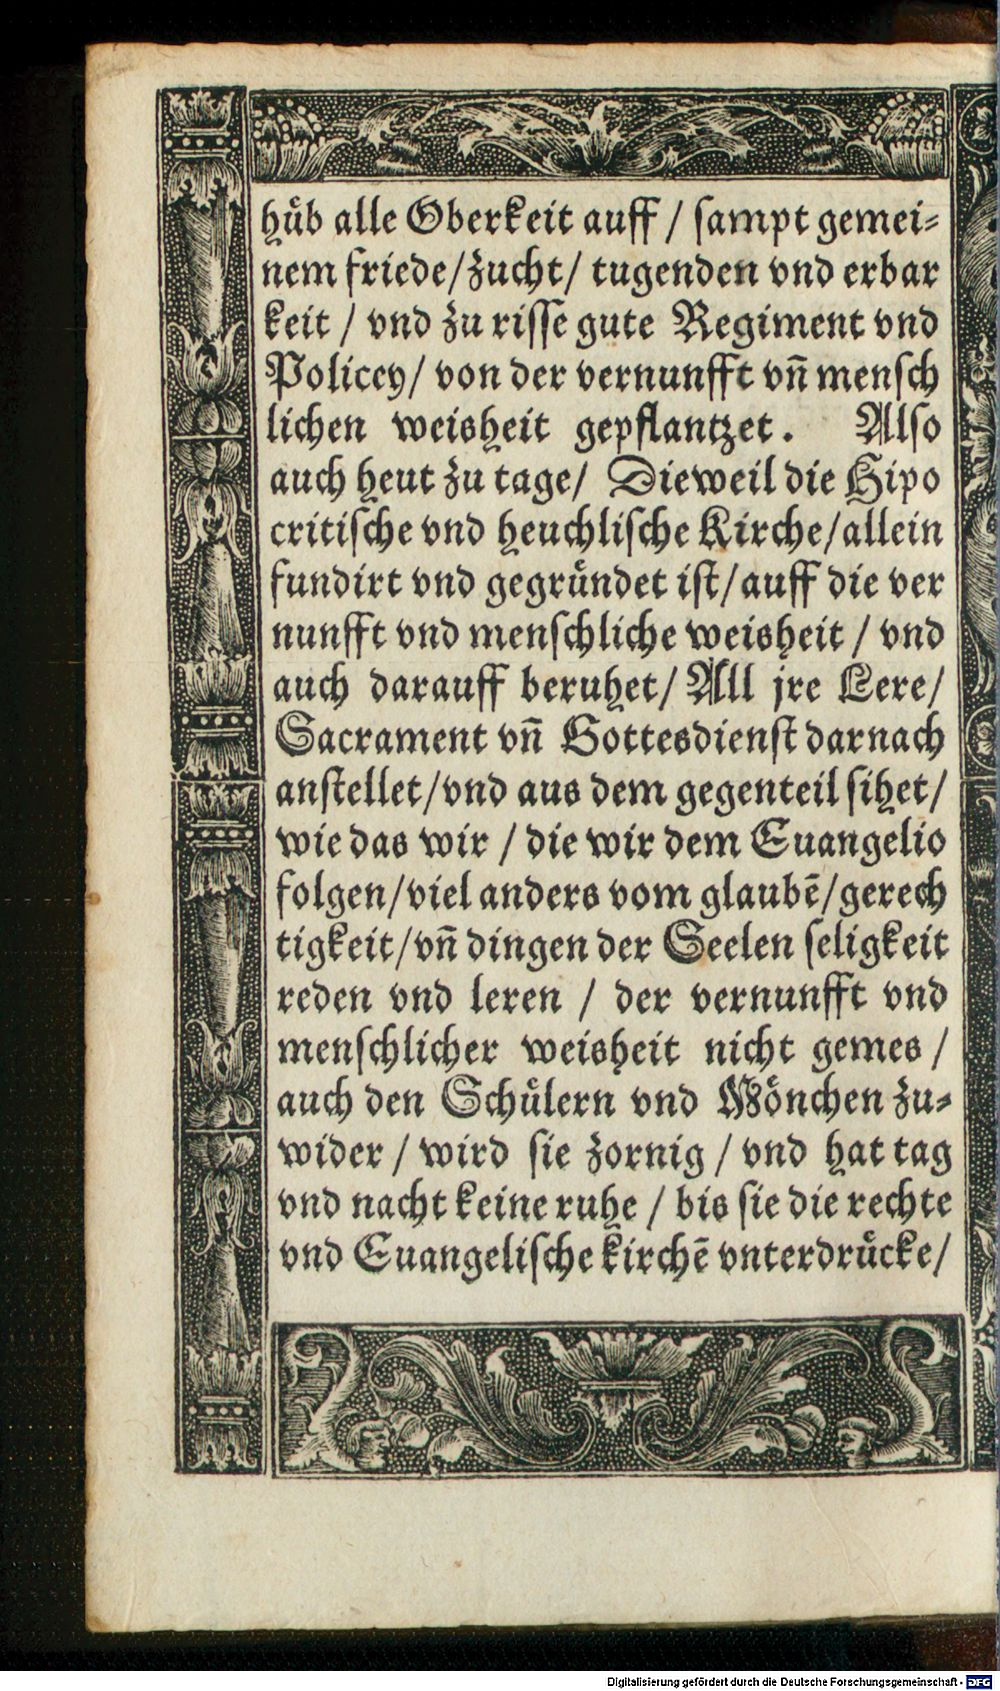 huͤb alle Oberkeit auff / sampt gemei-
nem friede/zucht/ tugenden vnd erbar
keit / vnd zu risse gute Regiment vnd
Policey/ von der vernunfft vñ mensch
lichen weisheit gepflantzet. Also
auch heut zu tage/ Dieweil die Hipo
critische vnd heuchlische Kirche/allein
fundirt vnd gegruͤndet ist/auff die ver
nunfft vnd menschliche weisheit / vnd
auch darauff beruhet/ All jre Lere/
Sacrament vñ Gottesdienst darnach
anstellet/vnd aus dem gegenteil sihet/
wie das wir / die wir dem Euangelio
folgen/viel anders vom glaubẽ/gerech
tigkeit/vñ dingen der Seelen seligkeit
reden vnd leren / der vernunfft vnd
menschlicher weisheit nicht gemes /
auch den Schuͤlern vnd Moͤnchen zu-
wider / wird sie zornig / vnd hat tag
vnd nacht keine ruhe / bis sie die rechte
vnd Euangelische kirchẽ vnterdruͤcke/
Digitalisierung gefördert durch die Deutsche Forschungsgemeinschaft - DFG